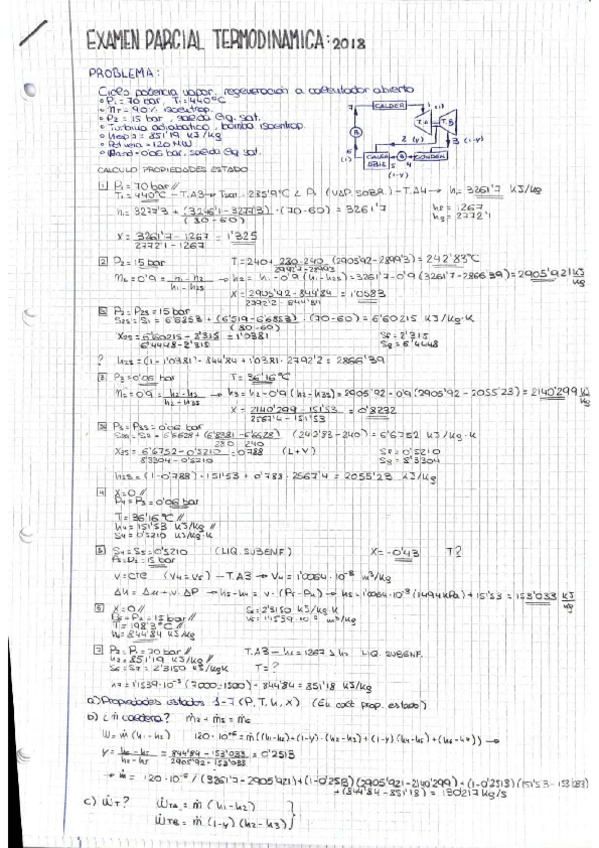 EXAMEN PARCIAL TERMODINAMICA: 2018
PROBLEMA:
Ciclo potencia vapor, regeneración a calentador abierto
• P1 = 70 bar, T1 = 440°C
• ηT = 90% isoentrop.
• P2 = 15 bar, salida líq. sat.
• Turbina adiabática, bomba isoentrop.
• h esp 7 = 851'19 kJ/kg
• Pot neta = 120 MW
• Pcond = 0'06 bar, salida líq. sat.
7 CALDER 1
T.A T.B
B
2 (y)
3 (1-y)
6
(1)
CALEN
ABIE
5 B 4 CONDEN
(1-y)
CALCULO PROPIEDADES ESTADO
1 P1 = 70 bar //
T1 = 440°C – T.A3 → Tsat = 285'9°C < T1 (VAP. SOBR.) – T.A4 → h1 = 3261'7 kJ/kg
h1 = 3277'3 + (3246'1 - 3277'3)/(80-60) · (70-60) = 3261'7
hf = 1267
hg = 2772'1
X = (3261'7 - 1267)/(2772'1 - 1267) = 1'325
2 P2 = 15 bar
T = 240 + (280-240)/(2992'7-2899'3) (2905'92-2899'3) = 242'83°C
ηs = 0'9 = (h1-h2)/(h1-h2s) → h2 = h1 - 0'9 (h1-h2s) = 3261'7 - 0'9 (3261'7 - 2866'39) = 2905'921 kJ/kg
X = (2905'92 - 844'84)/(2792'2 - 844'84) = 1'0583
2s P2 = P2s = 15 bar
S2s = S1 = 6'6853 + (6'519 - 6'6853)/(80-60) · (70-60) = 6'60215 kJ/kg·K
X2s = (6'60215 - 2'315)/(6'4448 - 2'315) = 1'0381
Sf = 2'315
Sg = 6'4448
? h2s = (1 - 1'0381) · 844'84 + 1'0381 · 2792'2 = 2866'39
3 P3 = 0'06 bar T = 36'16°C
ηs = 0'9 = (h2-h3)/(h2-h3s) → h3 = h2 - 0'9 (h2-h3s) = 2905'92 - 0'9 (2905'92 - 2055'23) = 2140'299 kJ/kg
X = (2140'299 - 151'53)/(2567'4 - 151'53) = 0'8232
3s P3 = P3s = 0'06 bar
S3s = S2 = 6'6628 + (6'8381 - 6'6628)/(280-240) (242'83-240) = 6'6752 kJ/kg·K
X3s = (6'6752 - 0'5210)/(8'3304 - 0'5210) = 0'788 (L+V)
Sf = 0'5210
Sg = 8'3304
h3s = (1 - 0'788) · 151'53 + 0'788 · 2567'4 = 2055'23 kJ/kg
4 X = 0 //
P4 = P3 = 0'06 bar
T = 36'16°C //
h4 = 151'53 kJ/kg //
S4 = 0'5210 kJ/kg·K
5 S4 = S5 = 0'5210 (LIQ. SUBENF.) X = -0'43 T?
P5 = P2 = 15 bar
V = cte (V4 = V5) – T.A3 → V4 = 1'0064·10⁻³ m³/kg
Δh = Δu + v·ΔP → h5 - h4 = v·(P5-P4) → h5 = 1'0064·10⁻³ (1494 kPa) + 151'53 = 153'033 kJ/kg
6 X = 0 //
P6 = P2 = 15 bar //
T = 198'3°C //
h6 = 844'84 kJ/kg
S6 = 2'3150 kJ/kg·K
V6 = 1'1539·10⁻³ m³/kg
7 P7 = P1 = 70 bar //
h7 = 851'19 kJ/kg //
S6 = S7 = 2'3150 kJ/kg·K
T.A3 – hf = 1267 > h7 LIQ. SUBENF.
T = ?
h7 = 1'1539·10⁻³ (7000-1500) + 844'84 = 851'18 kJ/kg
a) Propiedades estados 1-7 (P, T, h, X)
b) ¿ṁ caldera? ṁ2 + ṁ5 = ṁ6
Ẇ = ṁ (h1-h2) 120·10⁻⁶ = ṁ((h1-h2) + (1-y)·(h2-h3) + (1-y)(h4-h5) + (h6-h7)) →
y = (h6-h5)/(h2-h5) = (844'84 - 153'033)/(2905'92 - 153'033) = 0'2513
→ ṁ = 120·10⁻⁶ / (3261'7 - 2905'921) + (1-0'2513)(2905'921 - 2140'299) + (1-0'2513)(151'53 - 153'033)
+ (844'84 - 851'18) = 130217 kg/s
c) ẆT? ẆTA = ṁ (h1-h2)
ẆTB = ṁ (1-y) (h2-h3)